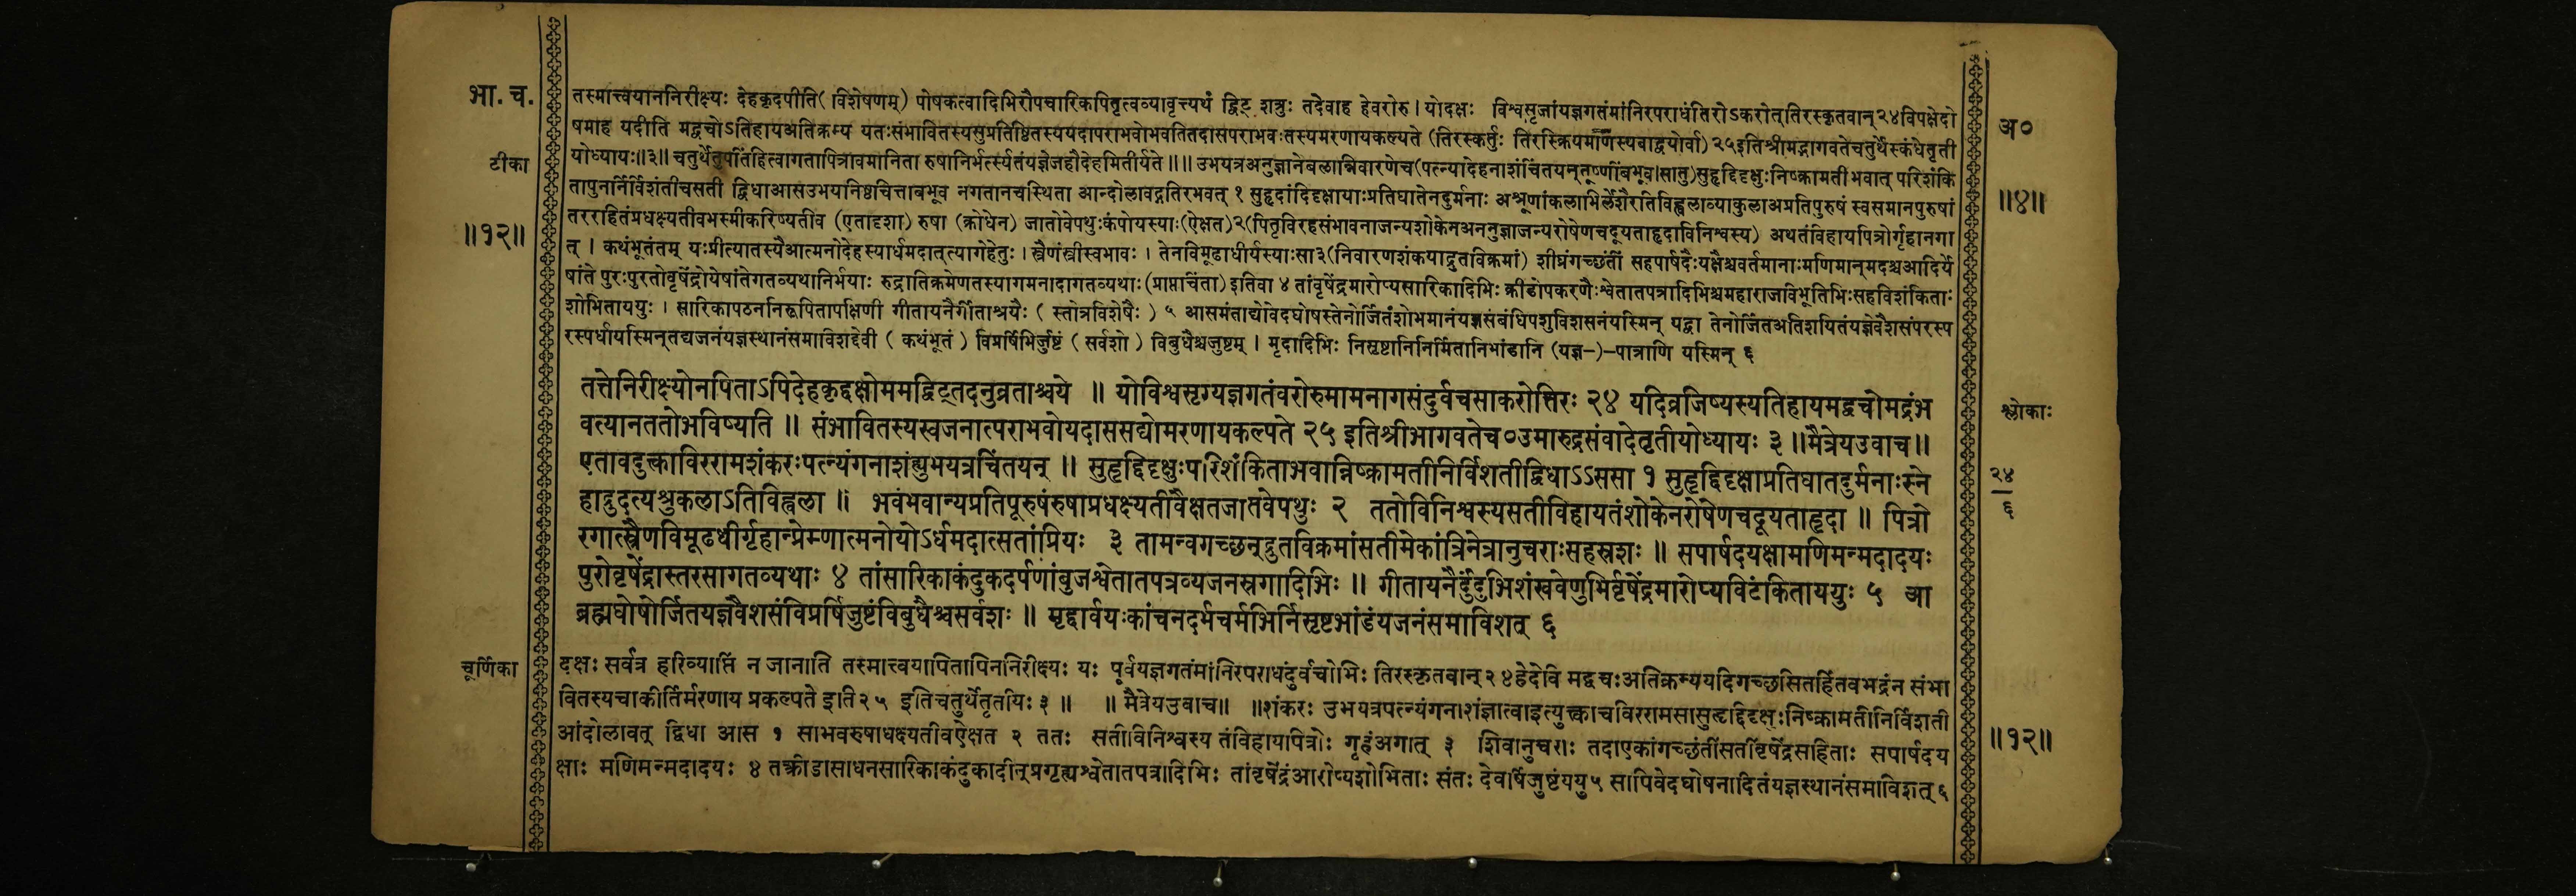 भा. च.
टीका
॥१२॥
तस्मात्त्वयाननिरीक्ष्यः देहकृदपीति( विशेषणम्) पोषकत्वादिभिरौपचारिकपितृत्वव्यावृत्त्यर्थं द्विट् शत्रुः तदेवाह हेवरोरु । योदक्षः विश्वसृजांयज्ञगतंमांनिरपराधंतिरोऽकरोत्‌तिरस्कृतवान् २४विपक्षेदो
षमाह यदीति मद्वचोऽतिहायअतिक्रम्य यतःसंभावितस्यसुप्रतिष्ठितस्ययदापराभवोभवतितदासपराभवःतस्यमरणायकल्प्यते (तिरस्कर्तुः तिरस्क्रियमाणस्यवाद्वयोर्वा) २५इतिश्रीमद्भागवतेचतुर्थेस्कंधेतृती
योध्यायः॥३॥ चतुर्थेतुपतिंहित्वागतापित्रावमानिता रुषानिर्भर्त्स्यतंयज्ञेजहौदेहमितीर्यते ॥॥ उभयत्रअनुज्ञानेबलान्निवारणेच(पत्न्यादेहनाशंचिंतयन्‌तूष्णींबभूव।सातु)सुहृद्दिदृक्षुःनिष्क्रामती भवात् परिशंकि
तापुनर्निर्विशंतीचसती द्विधाआसउभयनिष्ठचित्ताबभूव नगतानचस्थिता आन्दोलावद्गतिरभवत् १ सुहृदांदिदृक्षायाःप्रतिघातेनदुर्मनाः अश्रूणांकलाभिर्लेशैरतिविह्वलाव्याकुलाअप्रतिपुरुषं स्वसमानपुरुषां
तररहितंप्रधक्ष्यतीवभस्मीकरिष्यतीव (एतादृशा) रुषा (क्रोधेन) जातोवेपथुःकंपोयस्याः(ऐक्षत)२(पितृविरहसंभावनाजन्यशोकेनअननुज्ञाजन्यरोषेणचदूयताहृदाविनिश्वस्य) अथतंविहायपित्रोर्गृहानगा
त् । कथंभूतंतम् यःप्रीत्यातस्यैआत्मनोदेहस्यार्धमदात्‌त्यागेहेतुः । स्त्रैणंस्त्रीस्वभावः । तेनविमूढाधीर्यस्याःसा३(निवारणशंकयाद्रुतविक्रमां) शीघ्रंगच्छंतीं सहपार्षदैःयक्षैश्चवर्तमानाःमणिमान्‌मदश्चआदिर्ये
षांते पुरःपुरतोवृषेंद्रोयेषांतेगतव्यथानिर्भयाः रुद्रातिक्रमेणतस्यागमनादागतव्यथाः(प्राप्तचिंता) इतिवा ४ तांवृषेंद्रमारोप्यसारिकादिभिः क्रीडोपकरणैःश्वेतातपत्रादिभिश्चमहाराजविभूतिभिःसहविशंकिताः
शोभिताययुः । सारिकापठननिरूपितापक्षिणी गीतायनैर्गीताश्रयैः ( स्तोत्रविशेषैः ) ५ आसमंताद्योवेदघोषस्तेनोर्जितंशोभमानंयज्ञसंबंधिपशुविशसनंयस्मिन् यद्वा तेनोर्जितअतिशयितंयज्ञेवैशसंपरस्प
रस्पर्धायस्मिन्‌तद्यजनंयज्ञस्थानंसमाविशद्देवी ( कथंभूतं ) विप्रर्षिभिर्जुष्टं ( सर्वशो ) विबुधैश्चजुष्टम् । मृदादिभिः निसृष्टानिनिर्मितानिभांडानि (यज्ञ-)-पात्राणि यस्मिन् ६
तत्तेनिरीक्ष्योनपिताऽपिदेहकृद्दक्षोममद्विट्‌तदनुव्रताश्चये ॥ योविश्वसृग्यज्ञगतंवरोरुमामनागसंदुर्वचसाकरोत्तिरः २४ यदिव्रजिष्यस्यतिहायमद्वचोमद्रंभ
वत्यानततोभविष्यति ॥ संभावितस्यस्वजनात्पराभवोयदाससद्योमरणायकल्पते २५ इतिश्रीभागवतेच०उमारुद्रसंवादेतृतीयोध्यायः ३ ॥मैत्रेयउवाच॥
एतावदुक्त्काविररामशंकरःपत्न्यंगनाशंह्युभयत्रचिंतयन् ॥ सुहृद्दिदृक्षुःपरिशंकिताभवान्निष्क्रामतीनिर्विशतीद्विधाऽऽससा १ सुहृद्दिदृक्षाप्रतिघातदुर्मनाःस्ने
हाद्रुदत्यश्रुकलाऽतिविह्वला ॥ भवंभवान्यप्रतिपूरुषंरुषाप्रधक्ष्यतीवैक्षतजातवेपथुः २ ततोविनिश्वस्यसतीविहायतंशोकेनरोषेणचदूयताहृदा ॥ पित्रो
रगात्स्त्रैणविमूढधीर्गृहान्प्रेम्णात्मनोयोऽर्धमदात्सतांप्रियः ३ तामन्वगच्छन्‌द्रुतविक्रमांसतीमेकांत्रिनेत्रानुचराःसहस्रशः ॥ सपार्षदयक्षामणिमन्मदादयः
पुरोवृषेंद्रास्तरसागतव्यथाः ४ तांसारिकाकंदुकदर्पणांबुजश्वेतातपत्रव्यजनस्रगादिभिः ॥ गीतायनैर्दुंदुभिशंखवेणुभिर्वृषेंद्रमारोप्यविटंकिताययुः ५ आ
ब्रह्मघोषोर्जितयज्ञवैशसंविप्रर्षिजुष्टंविबुधैश्चसर्वशः ॥ मृद्दार्वयःकांचनदर्भचर्मभिर्निसृष्टभांडंयजनंसमाविशत् ६
चूर्णिका
दक्षः सर्वत्र हरिव्याप्तिं न जानाति तस्मात्त्वयापितापिननिरीक्ष्यः यः पूर्वंयज्ञगतंमांनिरपराधंदुर्वचोभिः तिरस्कृतवान् २४हेदेवि मद्वचःअतिक्रम्ययदिगच्छसितर्हितवभद्रंन संभा
वितस्यचाकीर्तिर्मरणाय प्रकल्पते इति२५ इतिचतुर्थेतृतीयः ३ ॥ ॥ मैत्रेयउवाच॥ ॥शंकरः उभयत्रपत्न्यंगनाशंज्ञात्वाइत्युक्त्काचविररामसासुहृद्दिदृक्षुःनिष्क्रामतीनिर्विशती
आंदोलावत् द्विधा आस १ साभवंरुषाधक्ष्यतीवऐक्षत २ ततः सतीविनिश्वस्य तंविहायपित्रोः गृहंअगात् ३ शिवानुचराः तदाएकांगच्छंतींसतींवृषेंद्रसहिताः सपार्षदय
क्षाः मणिमन्मदादयः ४ तत्क्रीडासाधनसारिकाकंदुकादीन्‌प्रगृह्यश्वेतातपत्रादिभिः तांवृषेंद्रंआरोप्यशोभिताः संतः देवर्षिजुष्टंययुः५ सापिवेदघोषनादितंयज्ञस्थानंसमाविशत् ६
अ०
॥४॥
श्लोकाः
२४
६
॥१२॥